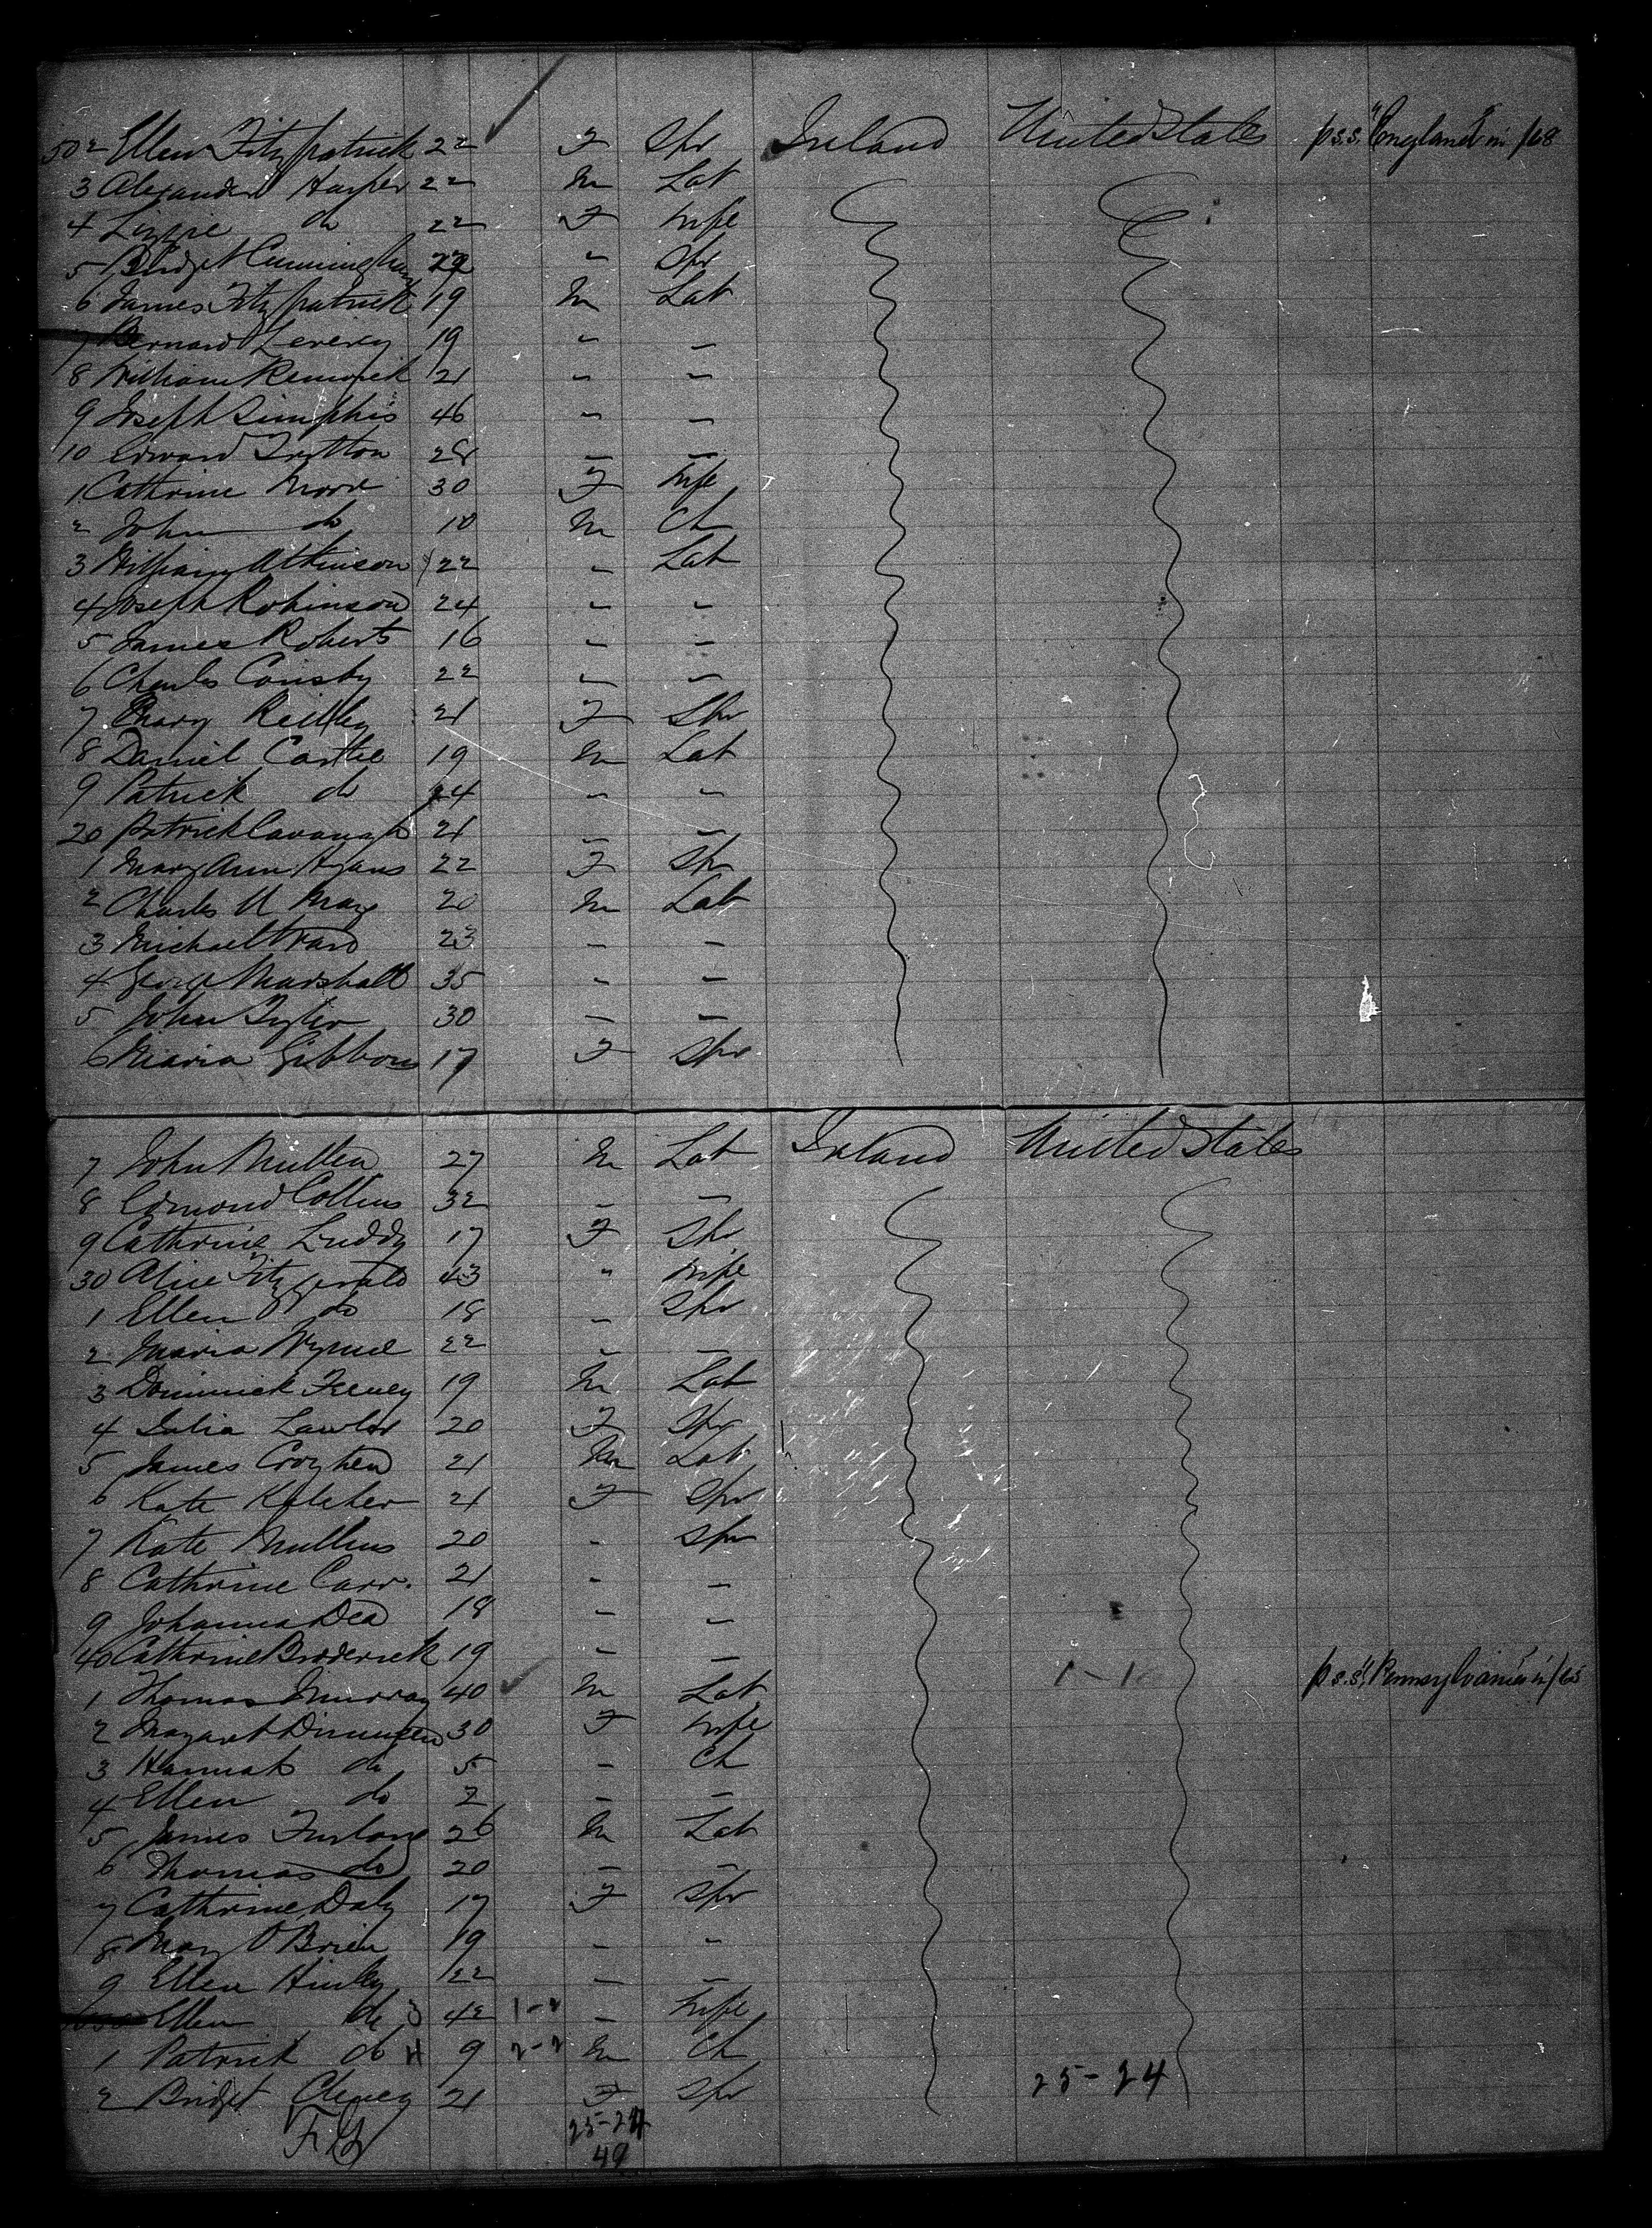 502 Ellen Fitzpatrick 22 F Spr Ireland United States p s.s. "England" in /68
3 Alexander Harper 22 M Lab
4 Lizzie do 22 F Wife
5 Bridget Cunningham 22 " Spr
6 James Fitzpatrick 19 M Lab
7 Bernard Leverey 19 " "
8 William Renwick 21 " "
9 Joseph 46 " "
10 Edward 28 " "
1 Cathrine Moore 30 F Wife
2 John do 10 M Ch
3 William Atkinson 22 " Lab
4 Joseph Robinson 24 " "
5 James Roberts 16 " "
6 Charles Conisby 22 " "
7 Mary Reilley 21 F Spr
8 Daniel Costlee 19 M Lab
9 Patrick do 24 " "
20 Patrick Cavanagh 21 " "
1 Mary Ann 22 F Spr
2 Charles 20 M Lab
3 Michael Ward 23 " "
4 George Marshall 35 " "
5 John 30 " "
6 Maria Gibbons 17 F Spr
7 John Mullen 27 M Lab Ireland United States
8 Edmond Collins 32 " "
9 Cathrine Luddy 17 F Spr
30 Alice Fitzgerald 43 " Wife
1 Ellen do 18 " Spr
2 Maria Wynne 22 " "
3 Dominick Feeney 19 M Lab
4 Julia Lawler 20 F Spr
5 James Croghen 21 M Lab
6 Kate Kelcher 21 F Spr
7 Kate Mullins 20 " Spr
8 Cathrine Carr. 21 " "
9 Johanna Dea 18 " "
40 Cathrine Broderick 19 " " 1-1
1 Thomas Murray 40 M Lab p s.s. "Pennsylvania" in /65
2 Margaret 30 F Wife
3 Hannah do 5 " Ch
4 Ellen do 2 " "
5 James Furlong 26 M Lab
6 Thomas do 20 " "
7 Cathrine Daly 17 F Spr
8 Mary O'Brien 19 " "
9 Ellen Hurley 22 " "
Ellen do 3 42 1-2 " Wife
1 Patrick do 4 9 2-2 M Ch
2 Bridget 21 F Spr 25-24
25-24
49